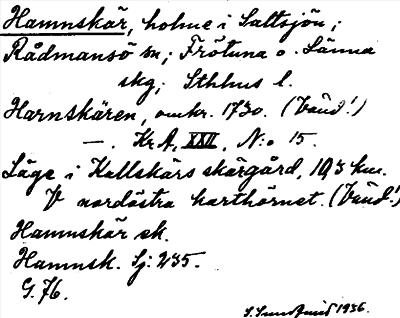 Hamnskär, holme i Saltsjön;
Rådmansö sn; Frötuna o. Länna
skg; Sthlms l.
Harnskären, omkr. 1730. (Vänd!)
—. Kr A, XXII, N:o 15.
Läge i Kallskärs skärgård, 19,5 km.
V nordöstra karthörnet. (Vänd!)
Hamnskär ek.
Hamnsk. Sj: 235.
G. 76.
1936.